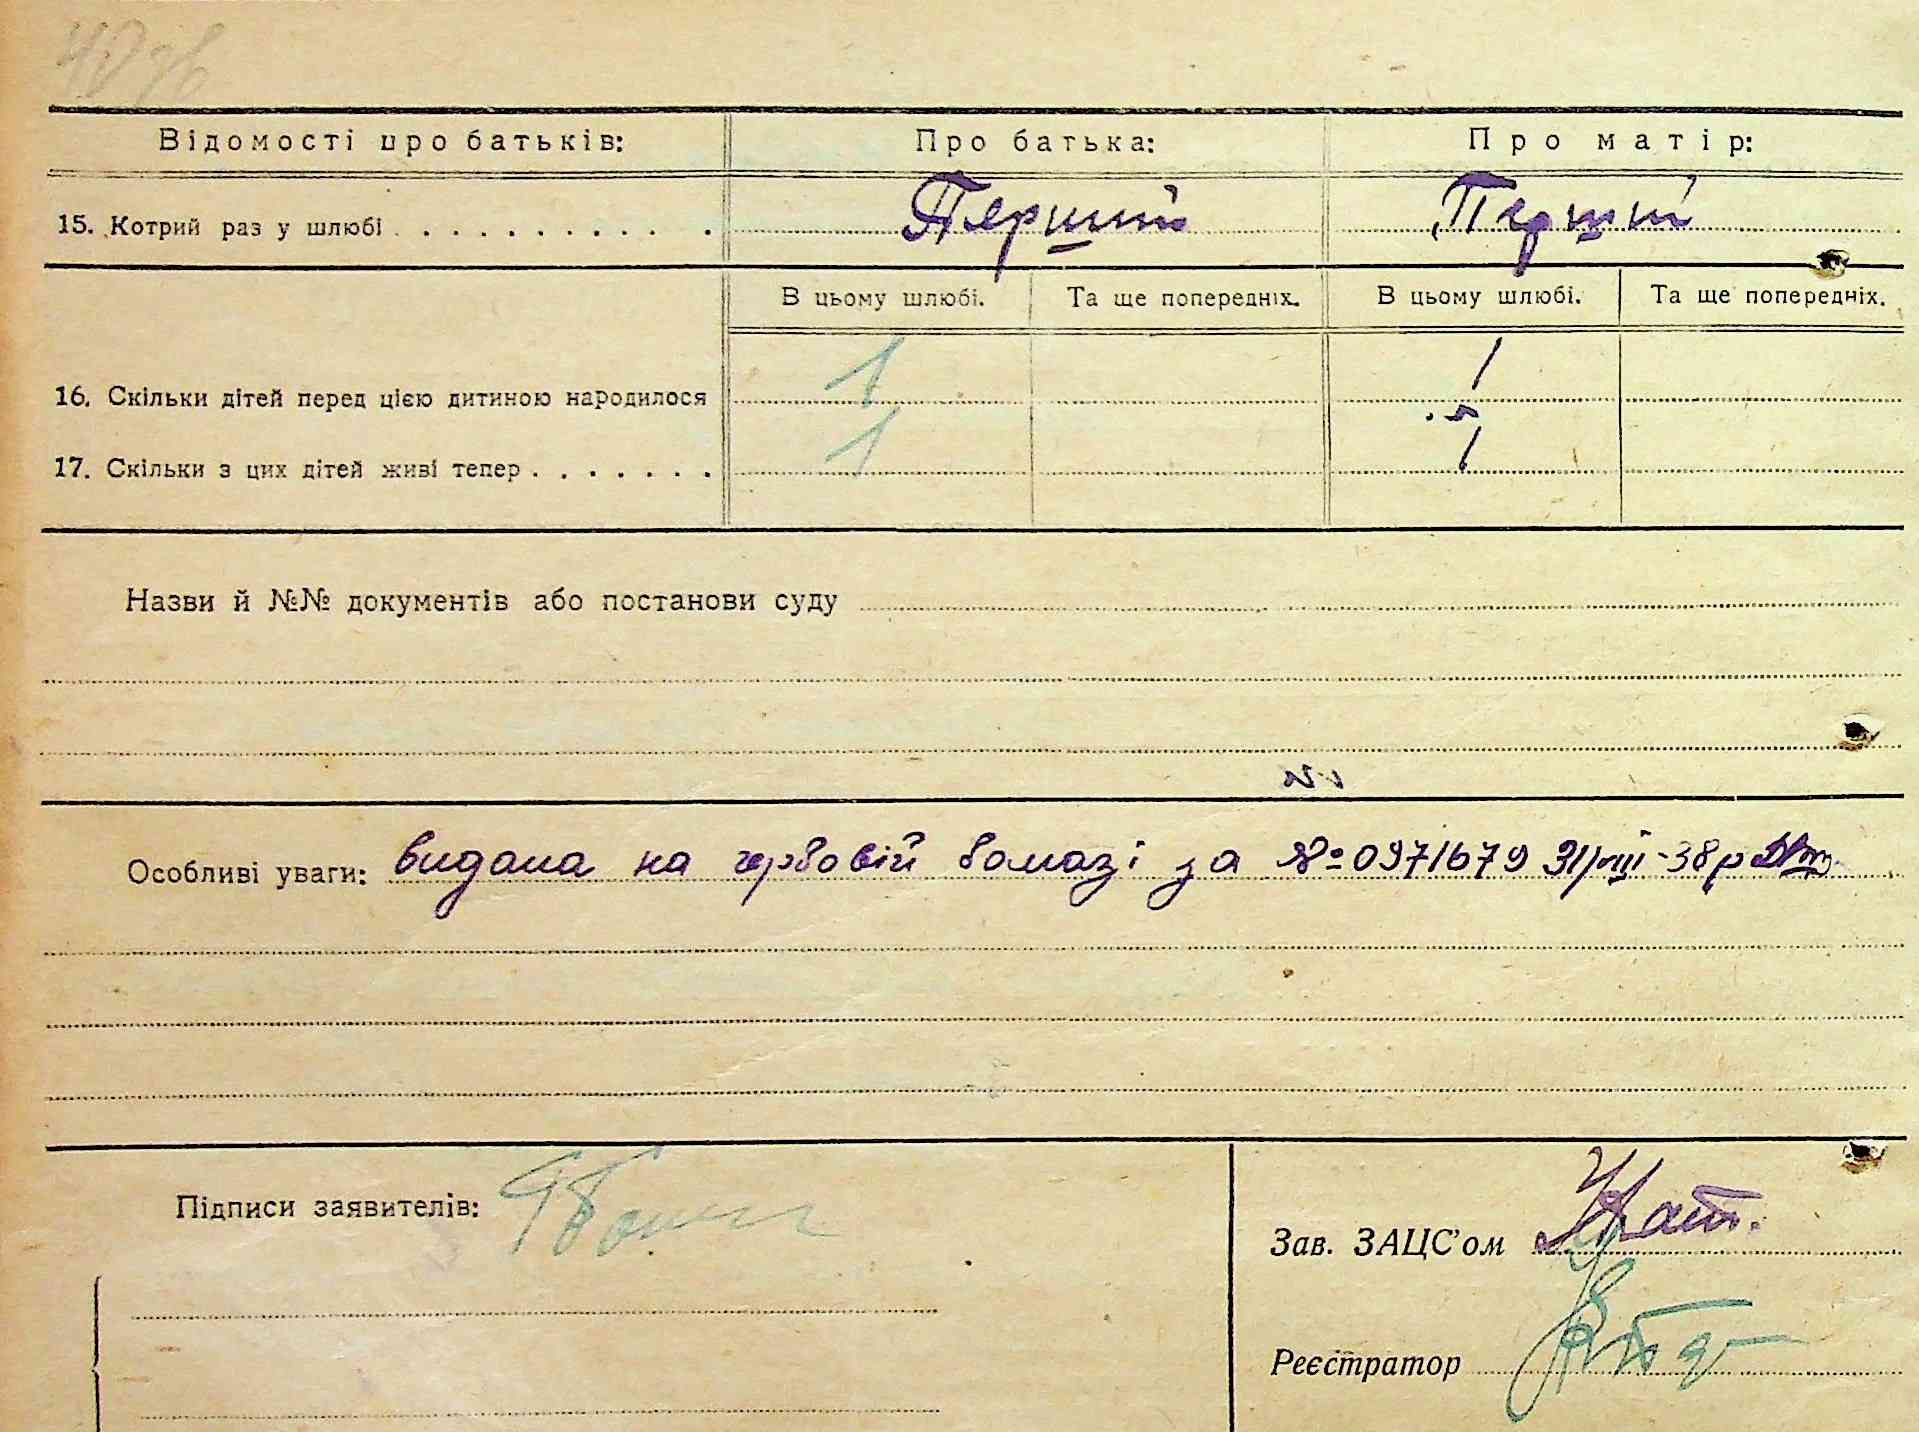 Відомості про батьків: Про батька: Про матір:
15. Котрий раз у шлюбі . . . . . . . . . . . Перший Перший
В цьому шлюбі. Та ще попередніх. В цьому шлюбі. Та ще попередніх.
16. Скільки дітей перед цією дитиною народилося 1 1
17. Скільки з цих дітей живі тепер . . . . . . . 1 1
Назви й №№ документів або постанови суду
Особливі уваги: видана на гербовій бомазі за № 0971679 31/VIII-38р
Підписи заявителів:
Зав. ЗАЦС'ом
Реєстратор